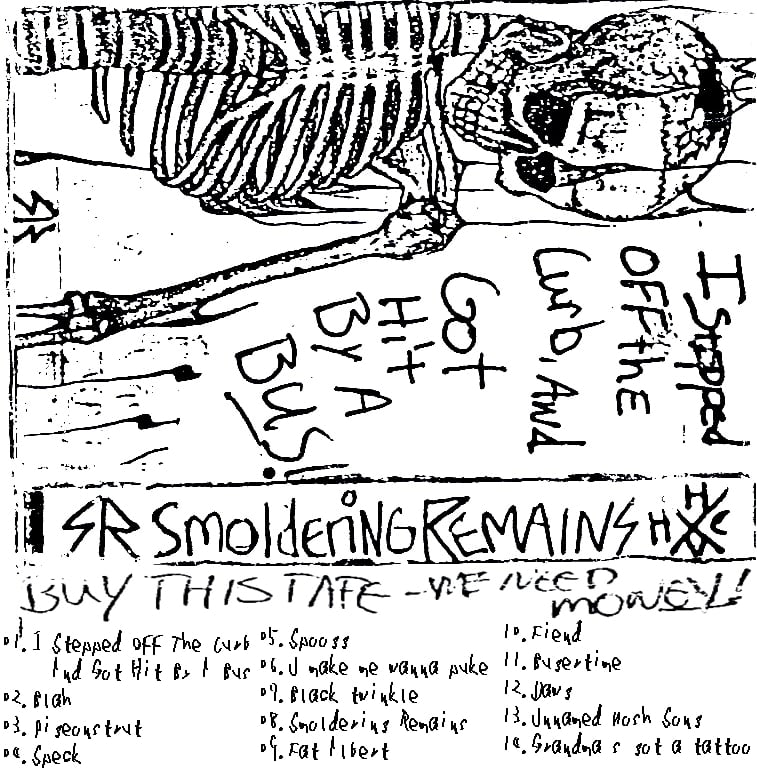 SR
I Stepped
OFF thE
Curb, And
Got
Hit
By A
BUS!
SR SmolderiNG REMAINS HXC
BUY THIS TAPE - WE NEED MONEY!
01. I Stepped OFF The Curb
And Got Hit By A Bus
02. Blah
03. Pigeonstrut
04. Speck
05. Spooge
06. U make me wanna puke
07. Black twinkle
08. Smoldering Remains
09. Fat Albert
10. Fiend
11. Busertine
12. Davs
13. Unnamed Mosh Song
14. Grandma s got a tattoo